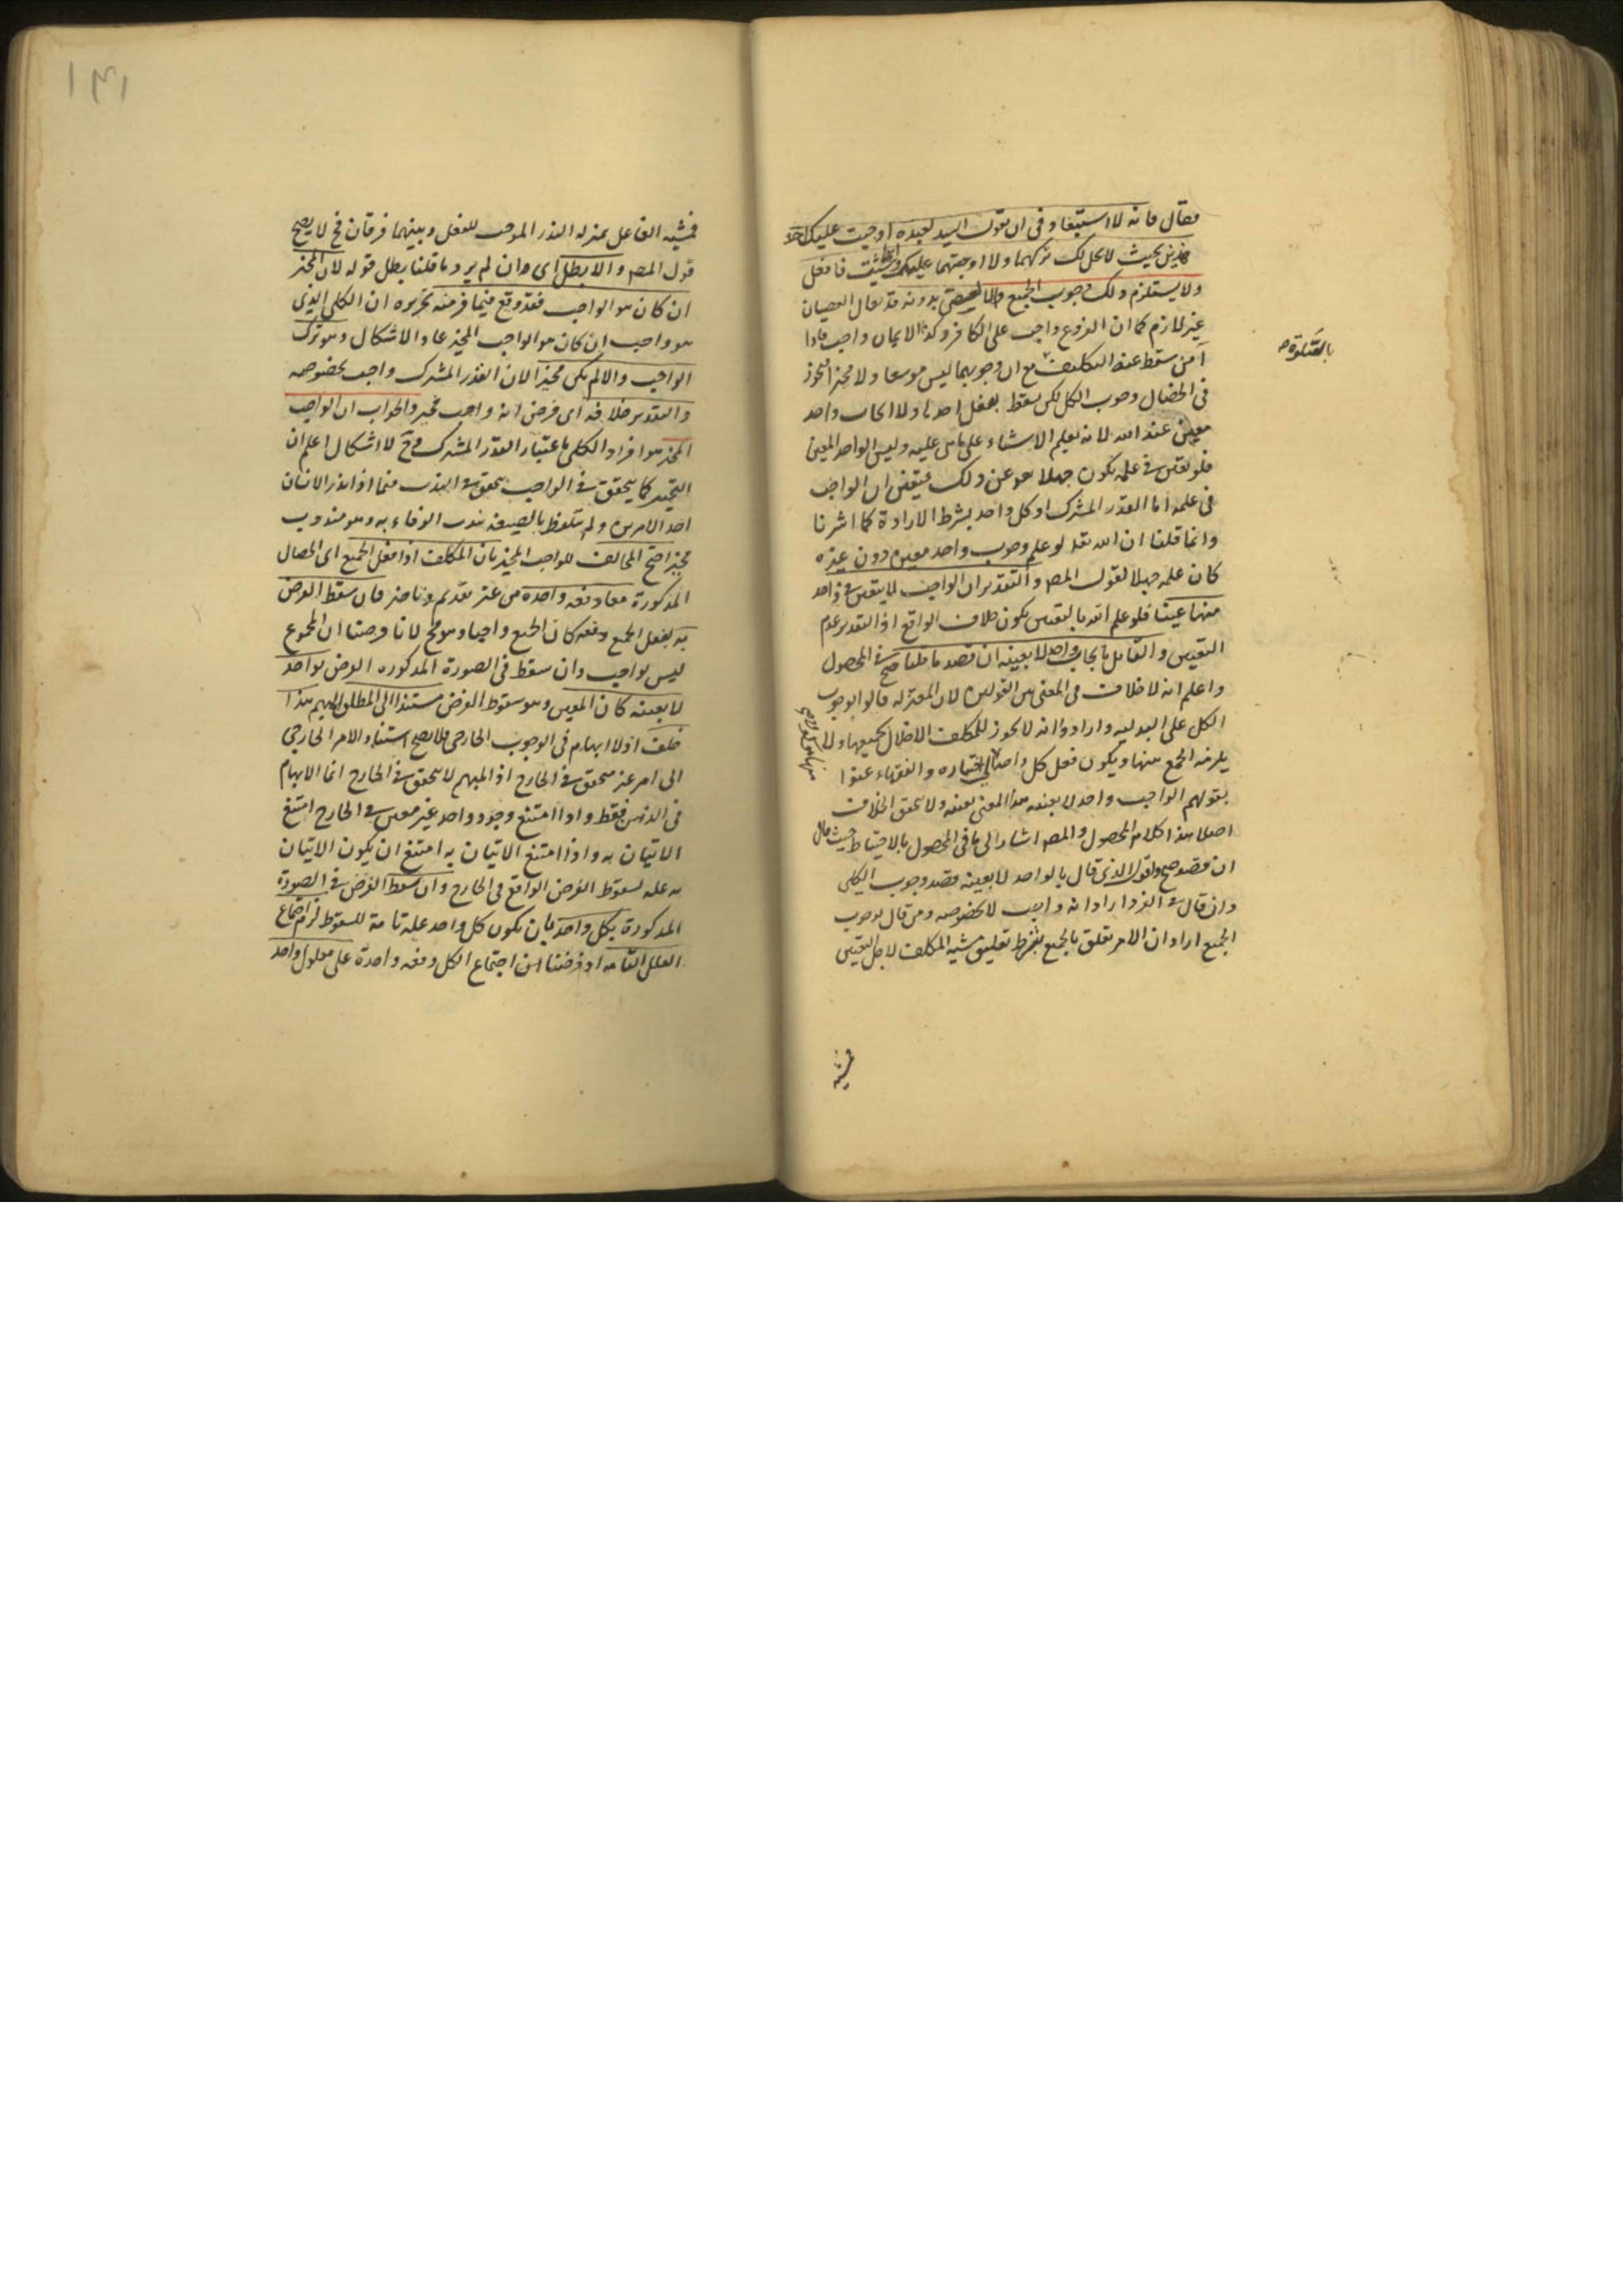 فقال فانه لا استبعاد فى ان يقول السيد لعبده اوجبت عليك احد
هذين بحيث لا يحل لك تركهما ولا اوجبتهما عليك وايا شئت فافعل
ولا يستلزم ذلك وجوب الجميع والا بدونه قد يقال العصيان
غير لازم كما ان الفروع واجب على الكافر وكذا الايمان واجب فاذا
آمن سقط عنه التكليف مع ان وجوبهما ليس موسعا ولا مخيرا فيجوز
بالصلوة
فى الخصال وجوب الكل لكن يسقط بفعل احدها ولا ايجاب واحد
معين عند الله لانه يعلم الاشياء على ما هى عليه وليس الواحد المعين
فلو تعين فى علمه يكون جهلا هو عن ذلك فيتعين ان الواجب
فى علمه اما القدر المشترك او كل واحد بشرط الارادة كما اشرنا
وانما قلنا ان الله تعالى لو علم وجوب واحد معين دون غيره
كان علمه جهلا لقول المصـ والتقدير ان الواجب لا يتعين فى واحد
منها عينا فلو علم الله بالتعين يكون خلاف الواقع اذ التقدير عدم
التعين والقائل بايجاب واحد لا بعينه ان قصد ما قلنا صح فى المحصول
واعلم انه لا خلاف فى المعنى بين القولين لان المعتزلة قالوا بوجوب
الكل على البدلية وارادوا انه لا يجوز للمكلف الاخلال بجميعها ولا
يلزمه الجمع منها ويكون فعل كل واحد الى اختياره والفقهاء عنوا
بقولهم الواجب واحد لا بعينه هذا المعنى بعينه ولا يتحقق الخلاف
اصلا هذا كلام المحصول والمصـ اشار الى ما فى المحصول بالاحتياط حيث قال
ان قصد صح واقول الذى قال بالواحد لا بعينه قصد وجوب الكلى
وان قال فى الفرد اراد انه واجب لا بخصوصه ومن قال بوجوب
الجميع اراد ان الامر تعلق بالجميع بشرط تعليق مشية المكلف لاجل التعيين
فمشية
١٣١
فمشية الفاعل بمنزلة القدر الموجب للفعل وبينهما فرقان فح لا يصح
قول المصـ والا بطل اى وان لم يرد ما قلنا يطل قوله لان المخير
ان كان هو الواجب فقد وقع فيما فر منه تحريره ان الكلى الذى
هو واجب ان كان هو الواجب المخير عاد الاشكال وهو ترك
الواجب والا لم يكن مخيرا لان القدر المشترك واجب بخصوصه
والتقدير خلافه اى فرض انه واجب مخير والجواب ان الواجب
المخير هو افراد الكلى باعتبار القدر المشترك فح لا اشكال اعلم ان
التخيير كما يتحقق فى الواجب يتحقق فى الندب فيما اذا نذر الانسان
احد الامرين ولم يتلفظ بالصيغة ندب الوفاء به وهو مندوب
مخير احتج المخالف للواجب المخير بان المكلف اذا فعل الجميع اى الخصال
المذكورة معا دفعة واحدة من غير تقديم وتاخير فان سقط الفرض
به بفعل الجميع دفعة كان الجميع واجبا وهو مح لانا فرضنا ان المجموع
ليس بواجب وان سقط فى الصورة المذكورة الفرض بواحد
لا بعينه كان المعين وهو سقوط الفرض مستندا الى المطلق المبهم هذا
خلف اذ لا ابهام فى الوجوب الخارجى فلا يصح استناد الامر الخارجى
الى امر غير متحقق فى الخارج اذ المبهم لا يتحقق فى الخارج انما الابهام
فى الذهن فقط واذا امتنع وجود واحد غير معين فى الخارج امتنع
الاتيان به واذا امتنع الاتيان به امتنع ان يكون الاتيان
به علة لسقوط الفرض الواقع فى الخارج وان سقط الفرض فى الصورة
المذكورة بكل واحد بان يكون كل واحد علة تامة للسقوط لزم اجتماع
العلل التامة اذ فرضنا ان اجتماع الكل دفعة واحدة على معلول واحد